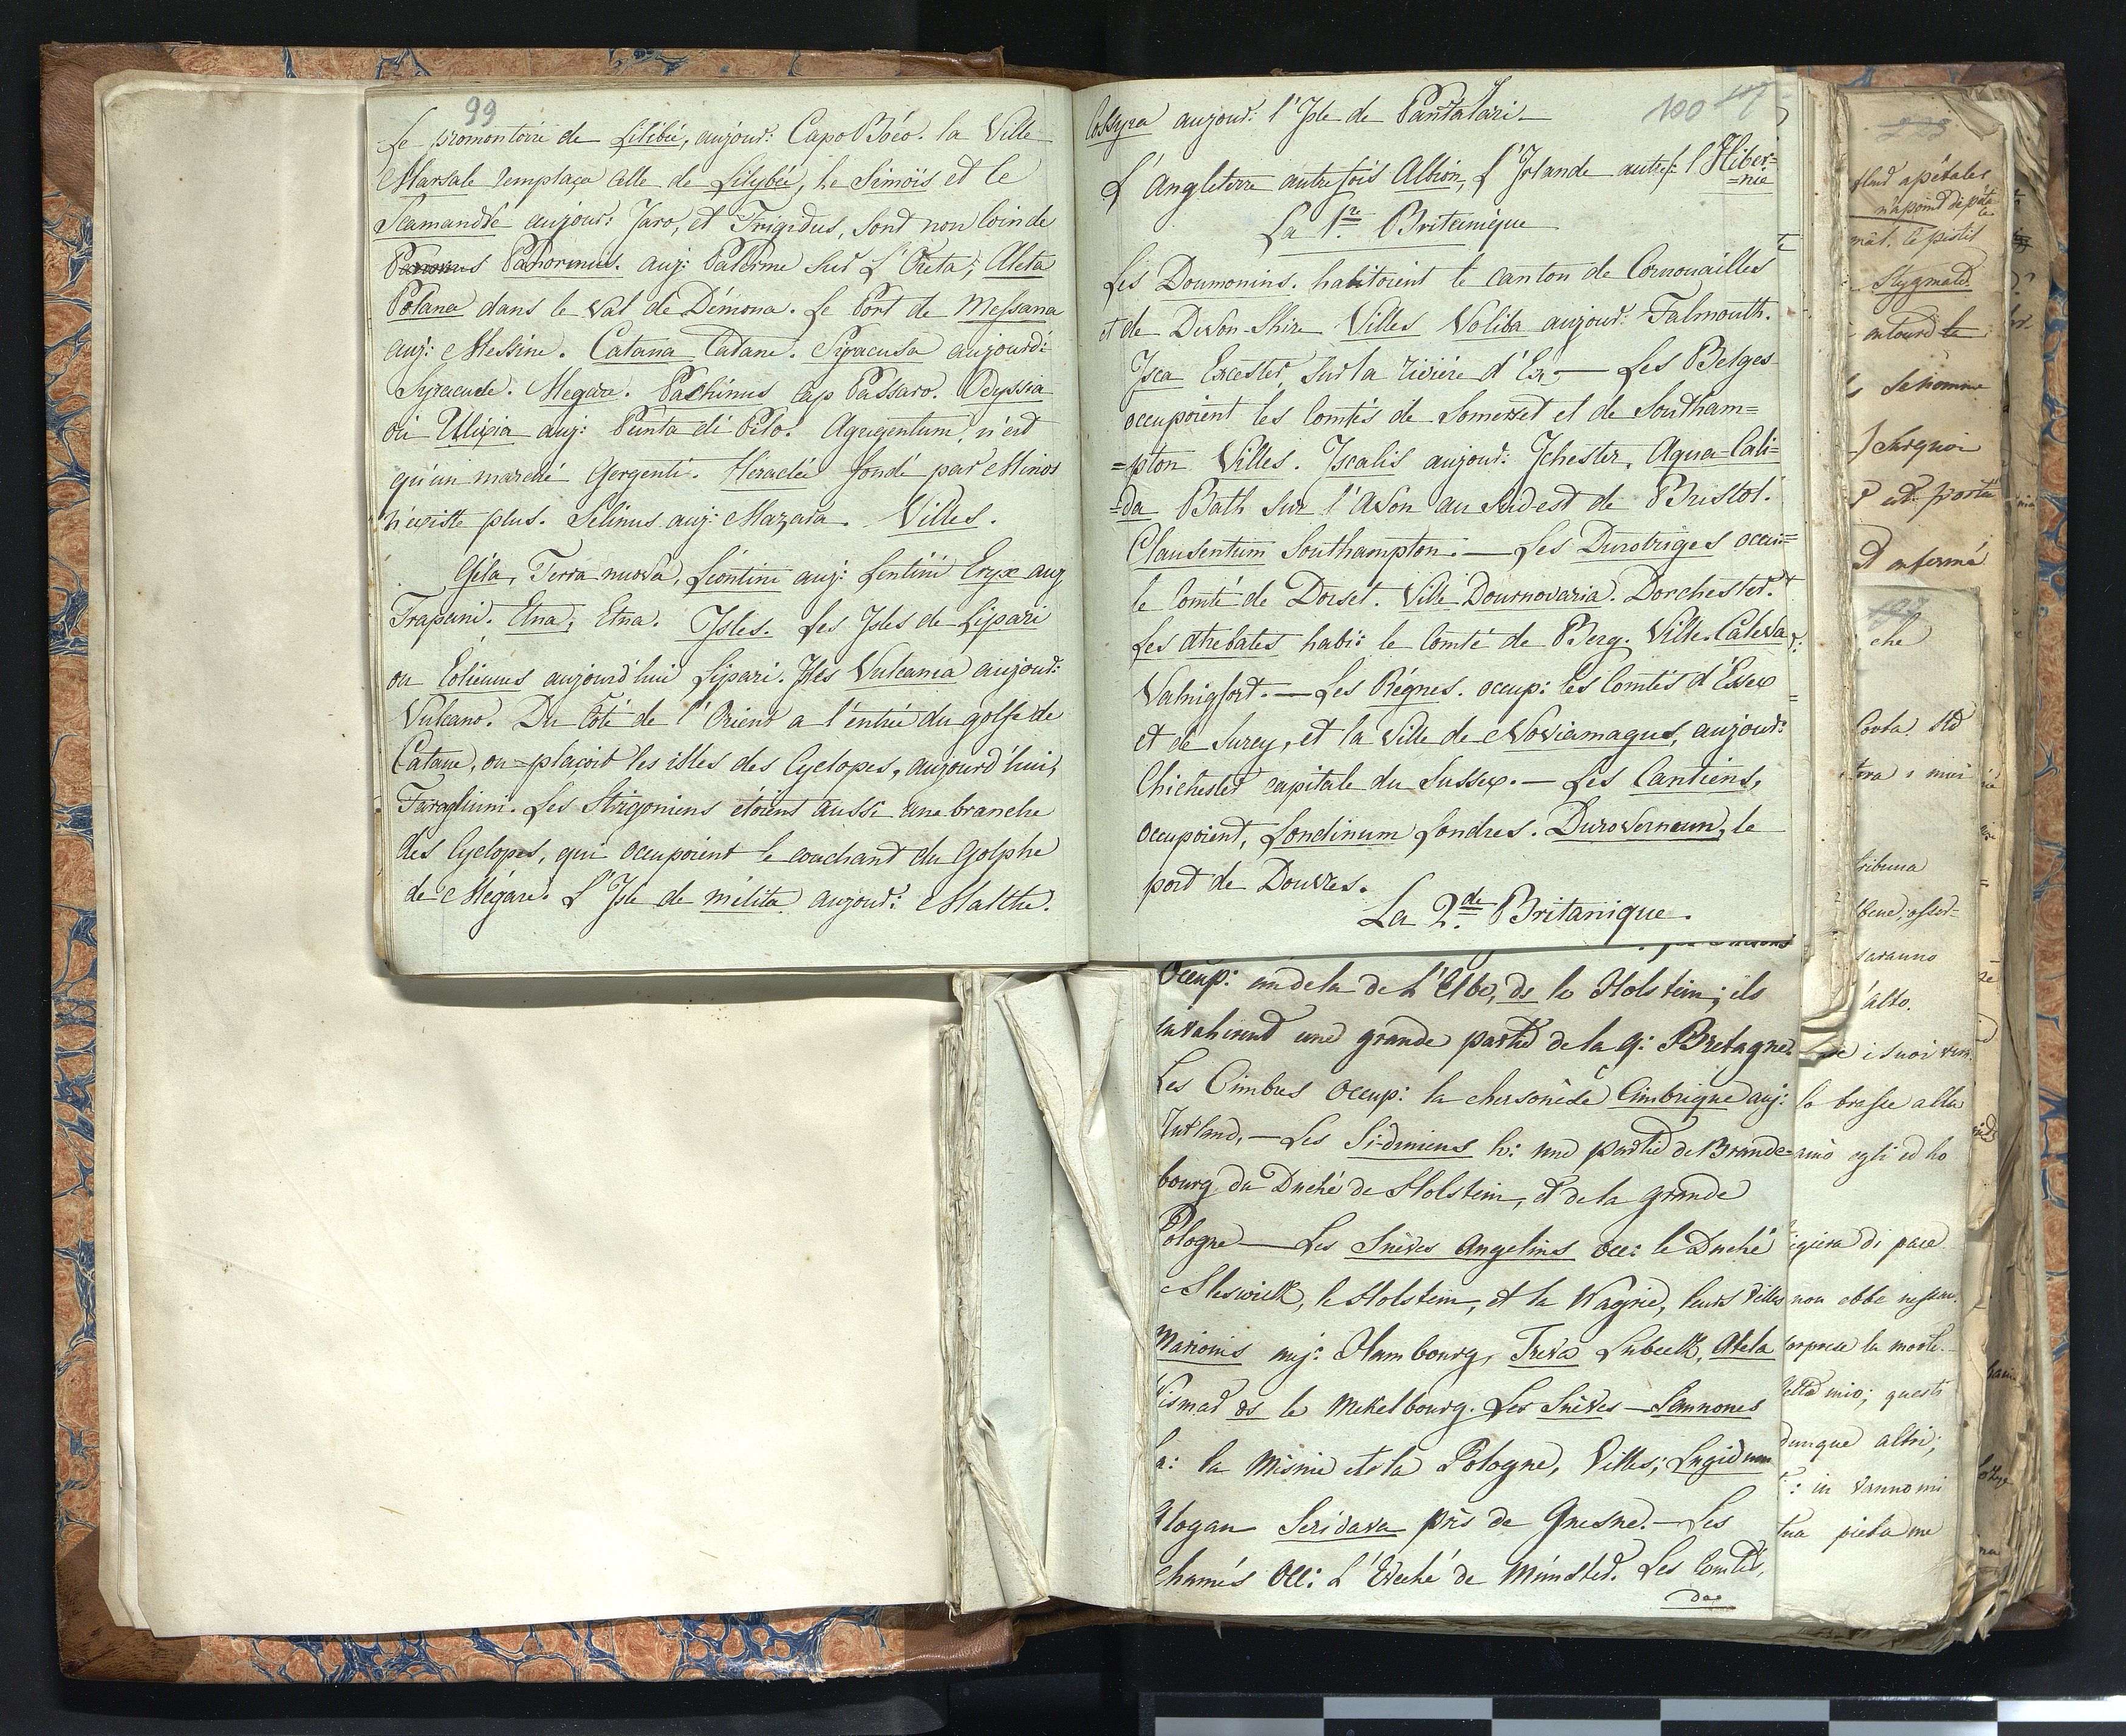 99
Le promontoire de Lilibée, aujour: Capo Boéo. la Ville
Marsale remplaça celle de Lilybée, le Simöis et le
Scamandre aujour: Jaro, et Frigidus, sont non loin de
Panormus. auj: Palerme sur L'Oreta; Aleta
Potana dans le Val de Démona. Le Port de Messana
auj: Messine. Catana Catane. Siracusa aujourd:
Syracuse. Megare. Pachinus Cap Passaro. Odyssia
ou Ulixia auj: Punta di Pilo. Agrigentum, n'est
qu'un marché Gergenti. Heraclée fondé par Minos
n'existe plus. Selinus auj: Mazara. Villes.
Géla, Terra nuova, Léontini auj: Lentini Eryx auj
Trapani. Etna, Etna. Isles. Les Isles de Lipari
ou Eoliennes aujourd'hui Lipari. Isles Vulcania aujour:
Vulcano. Du Côté de l'Orient a l'entrée du golfe de
Catane, on plaçoit les isles des Cyclopes, aujourd'hui,
Faraglium. Les Strigoniens étoient aussi une branche
des Cyclopes, qui occupoient le couchant du Golphe
de Mégare. L'Isle de mélita aujour: Malthe.
100
Cossyra aujour: l'Isle de Pantalari.
L'Angleterre autrefois Albion, L'Irlande autref: l'Hiber=
=nie
La 1.re Britannique
Les Doumonins. habitoient le canton de Cornouailles
et de Devon-Shire Villes Voliba aujour: Falmouth.
Isca Excester sur la rivière d'Ex. — Les Belges
occupoient les Comtés de Somerset et de Southam=
=pton Villes. Iscalis aujour: Ichester, Aqua-Cali=
=da Bath sur l'Avon au Sud-est de Bristol.
Clausentum Southampton. — Les Durotriges occu=
le Comté de Dorset. Ville Dournovaria. Dorchester.
Les Atrebates habi: le Comté de Berg. Ville. Caleva
Valnigfort. — Les Régnes. occup: les Comtés d'Essex
et de Surey, et la Ville de Noviamagus, aujour:
Chichester capitale du Sussex. — Les Cantiens,
occupoient, Londinum Londres. Duroverneum, le
port de Douvres.
La 2.de Britanique.
Occup: audela de L'Elbe, ds le Holstein; ils
envahirent une grande partie de la g: Bretagne.
Les Cimbres occup: la chersonèse Cimbrique auj:
Jutland. — Les Sidiniens h: une partie de Brande=
bourg du Duché de Holstein, et de la grande
Pologne — Les Suèves Angelins occ: le Duché
Sleswick, le Holstein, et la Wagrie, leurs villes
Marionis auj: Hambourg, Treva Lubeck, Alela
Vismar ds le Mekelbourg. Les Suèves — Semnones
h: la Misnie et la Pologne, Villes; Lugidunum
Glogau Seridava près de Gnesne. — Les
chamés occ: L'Evêché de Munster. Les Comtés,
des
n'a point de péta
le pistil
Stygmate
entoure le
se nomme
est porté
che
tribuna
saranno
alto.
e i suoi
le brassé alla
egli ed ho
di pace
non ebbe nessun
la morte
mio; questi
dunque altri;
: in vanno mi
tua pieta me